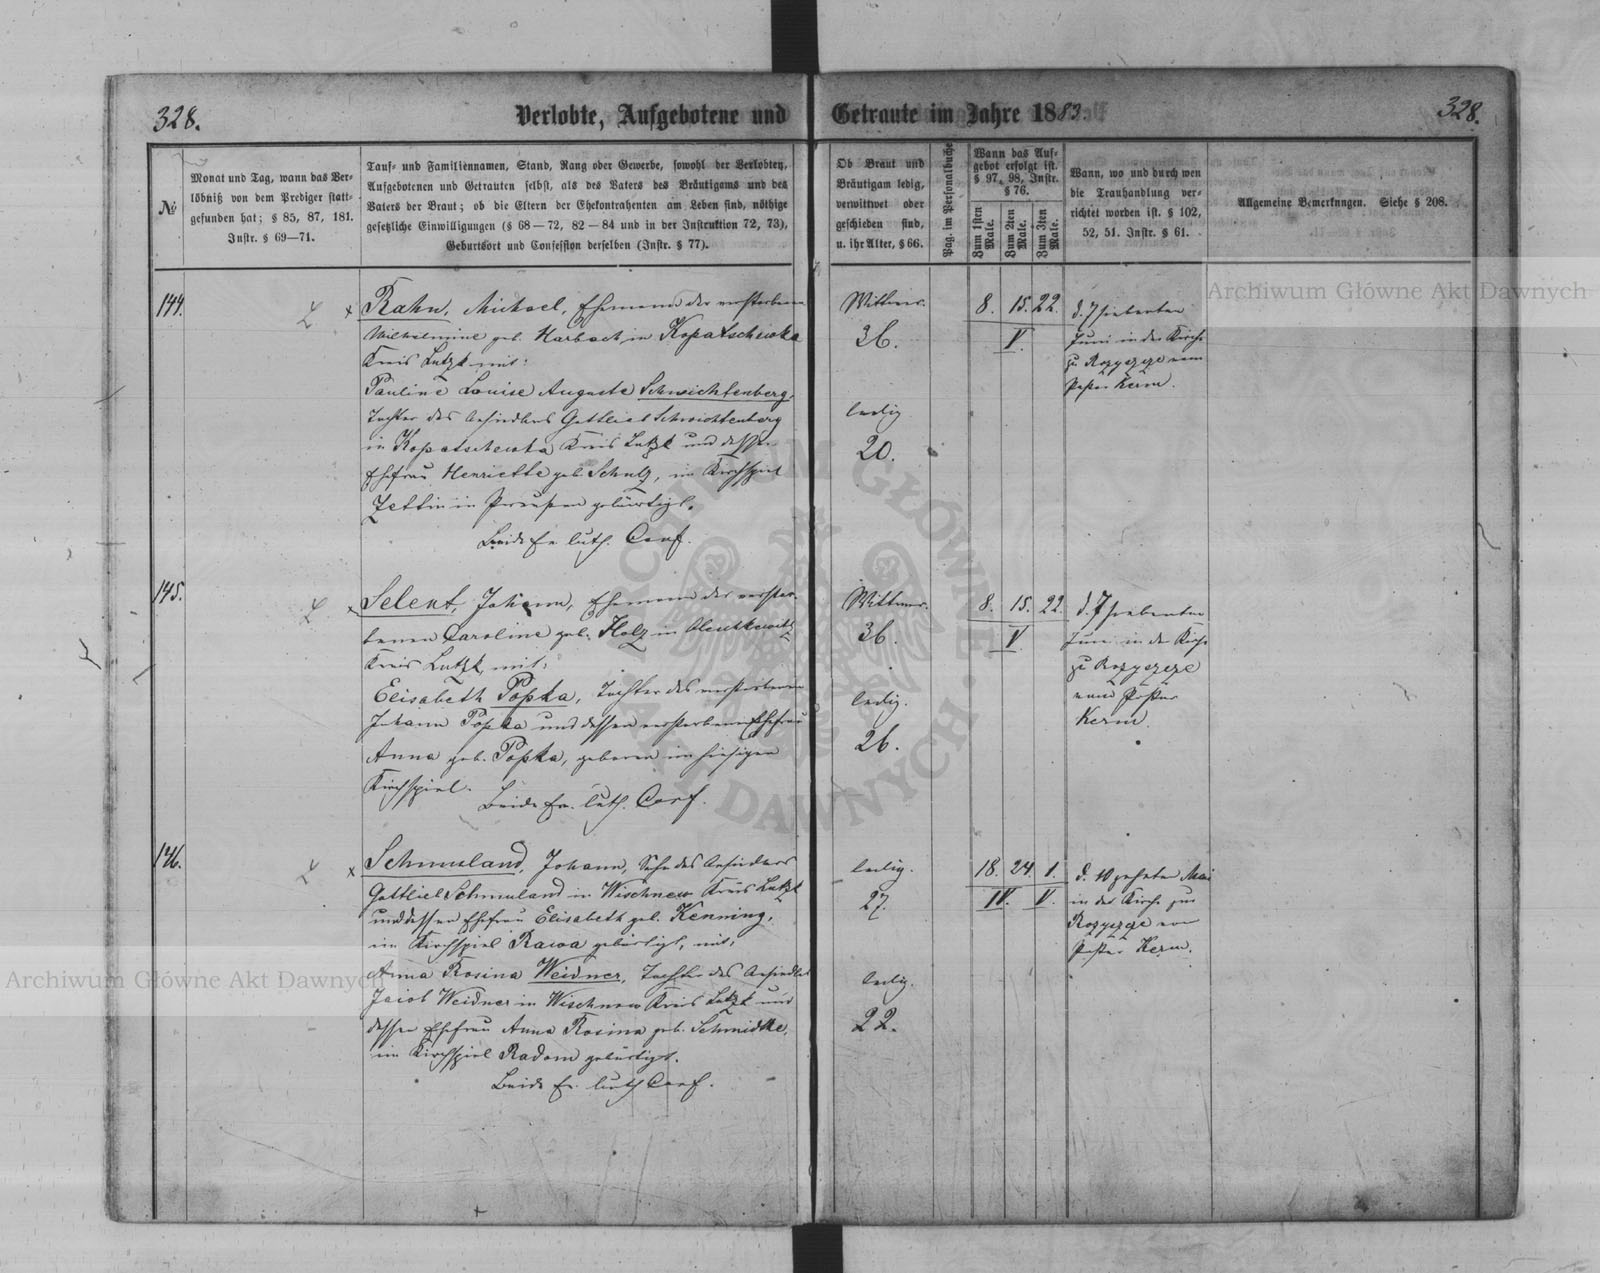 328.
Verlobte, Aufgebotene und
Getraute im Jahre 1883.
328.
№
Monat und Tag, wann das Ver-
löbniß von dem Prediger statt-
gefunden hat; § 85, 87, 181.
Instr. § 69—71.
Tauf- und Familiennamen, Stand, Rang oder Gewerbe, sowohl der Verlobten,
Aufgebotenen und Getrauten selbst, als des Vaters des Bräutigams und des
Vaters der Braut; ob die Eltern der Ehekontrahenten am Leben sind, nöthige
gesetzliche Einwilligungen (§ 68—72, 82—84 und in der Instruktion 72, 73),
Geburtsort und Confession derselben (Instr. § 77).
Ob Braut und
Bräutigam ledig,
verwittwet oder
geschieden sind,
u. ihr Alter, § 66.
Pag. im Personalbuche
Wann das Auf-
gebot erfolgt ist.
§ 97, 98, Instr.
§ 76.
Zum 1sten Male.
Zum 2ten Male.
Zum 3ten Male.
Wann, wo und durch wen
die Trauhandlung ver-
richtet worden ist. § 102,
52, 51. Instr. § 61.
Allgemeine Bemerkungen. Siehe § 208.
144.
Rahn, Michael, Ehemann der verstorbenen
Wilhelmine geb. Harbach in Kopatschewka
Kreis Lutzk mit:
Pauline Louise Auguste Schwichtenberg,
Tochter des Ansiedlers Gottlieb Schwichtenberg
in Kopatschewka Kreis Lutzk und dessen
Ehefrau Henriette geb. Schulz, im Kirchspiel
Zettin in Preußen gebürtigt.
Beide Ev. luth. Conf.
Wittwer.
36.
ledig.
20.
8. 15. 22.
V.
d. 7 siebenten
Juni in der Kirche
zu Rozyszcze vom
Pastor Kerm.
145.
Selent, Johann, Ehemann der verstor-
benen Caroline geb. Holz in
Kreis Lutzk, mit:
Elisabeth Popka, Tochter des verstorbenen
Johann Popka und dessen verstorbenen Ehefrau
Anna geb. Popka, geboren im hiesigen
Kirchspiel.
Beide Ev. luth. Conf.
Wittwer.
36.
ledig.
26.
8. 15. 22.
V.
d. 7 siebenten
Juni in der Kirche
zu Rozyszcze
vom Pastor
Kerm.
146.
Schmuland, Johann, Sohn des Ansiedlers
Gottlieb Schmuland in Wischnew Kreis Lutzk
und dessen Ehefrau Elisabeth geb. Kenning,
im Kirchspiel Rawa gebürtigt, mit:
Anna Rosina Weidner, Tochter des Ansiedlers
Jacob Weidner in Wischnew Kreis Lutzk und
dessen Ehefrau Anna Rosina geb. Schmidtke,
im Kirchspiel Radom gebürtigt.
Beide Ev. luth. Conf.
ledig.
27.
ledig.
22.
18. 24. 1.
IV. V.
d. 10 zehnten Mai
in der Kirche zu
Rozyszcze vom
Pastor Kerm.
Archiwum Główne Akt Dawnych
Archiwum Główne Akt Dawnych
ARCHIWUM GŁÓWNE AKT DAWNYCH